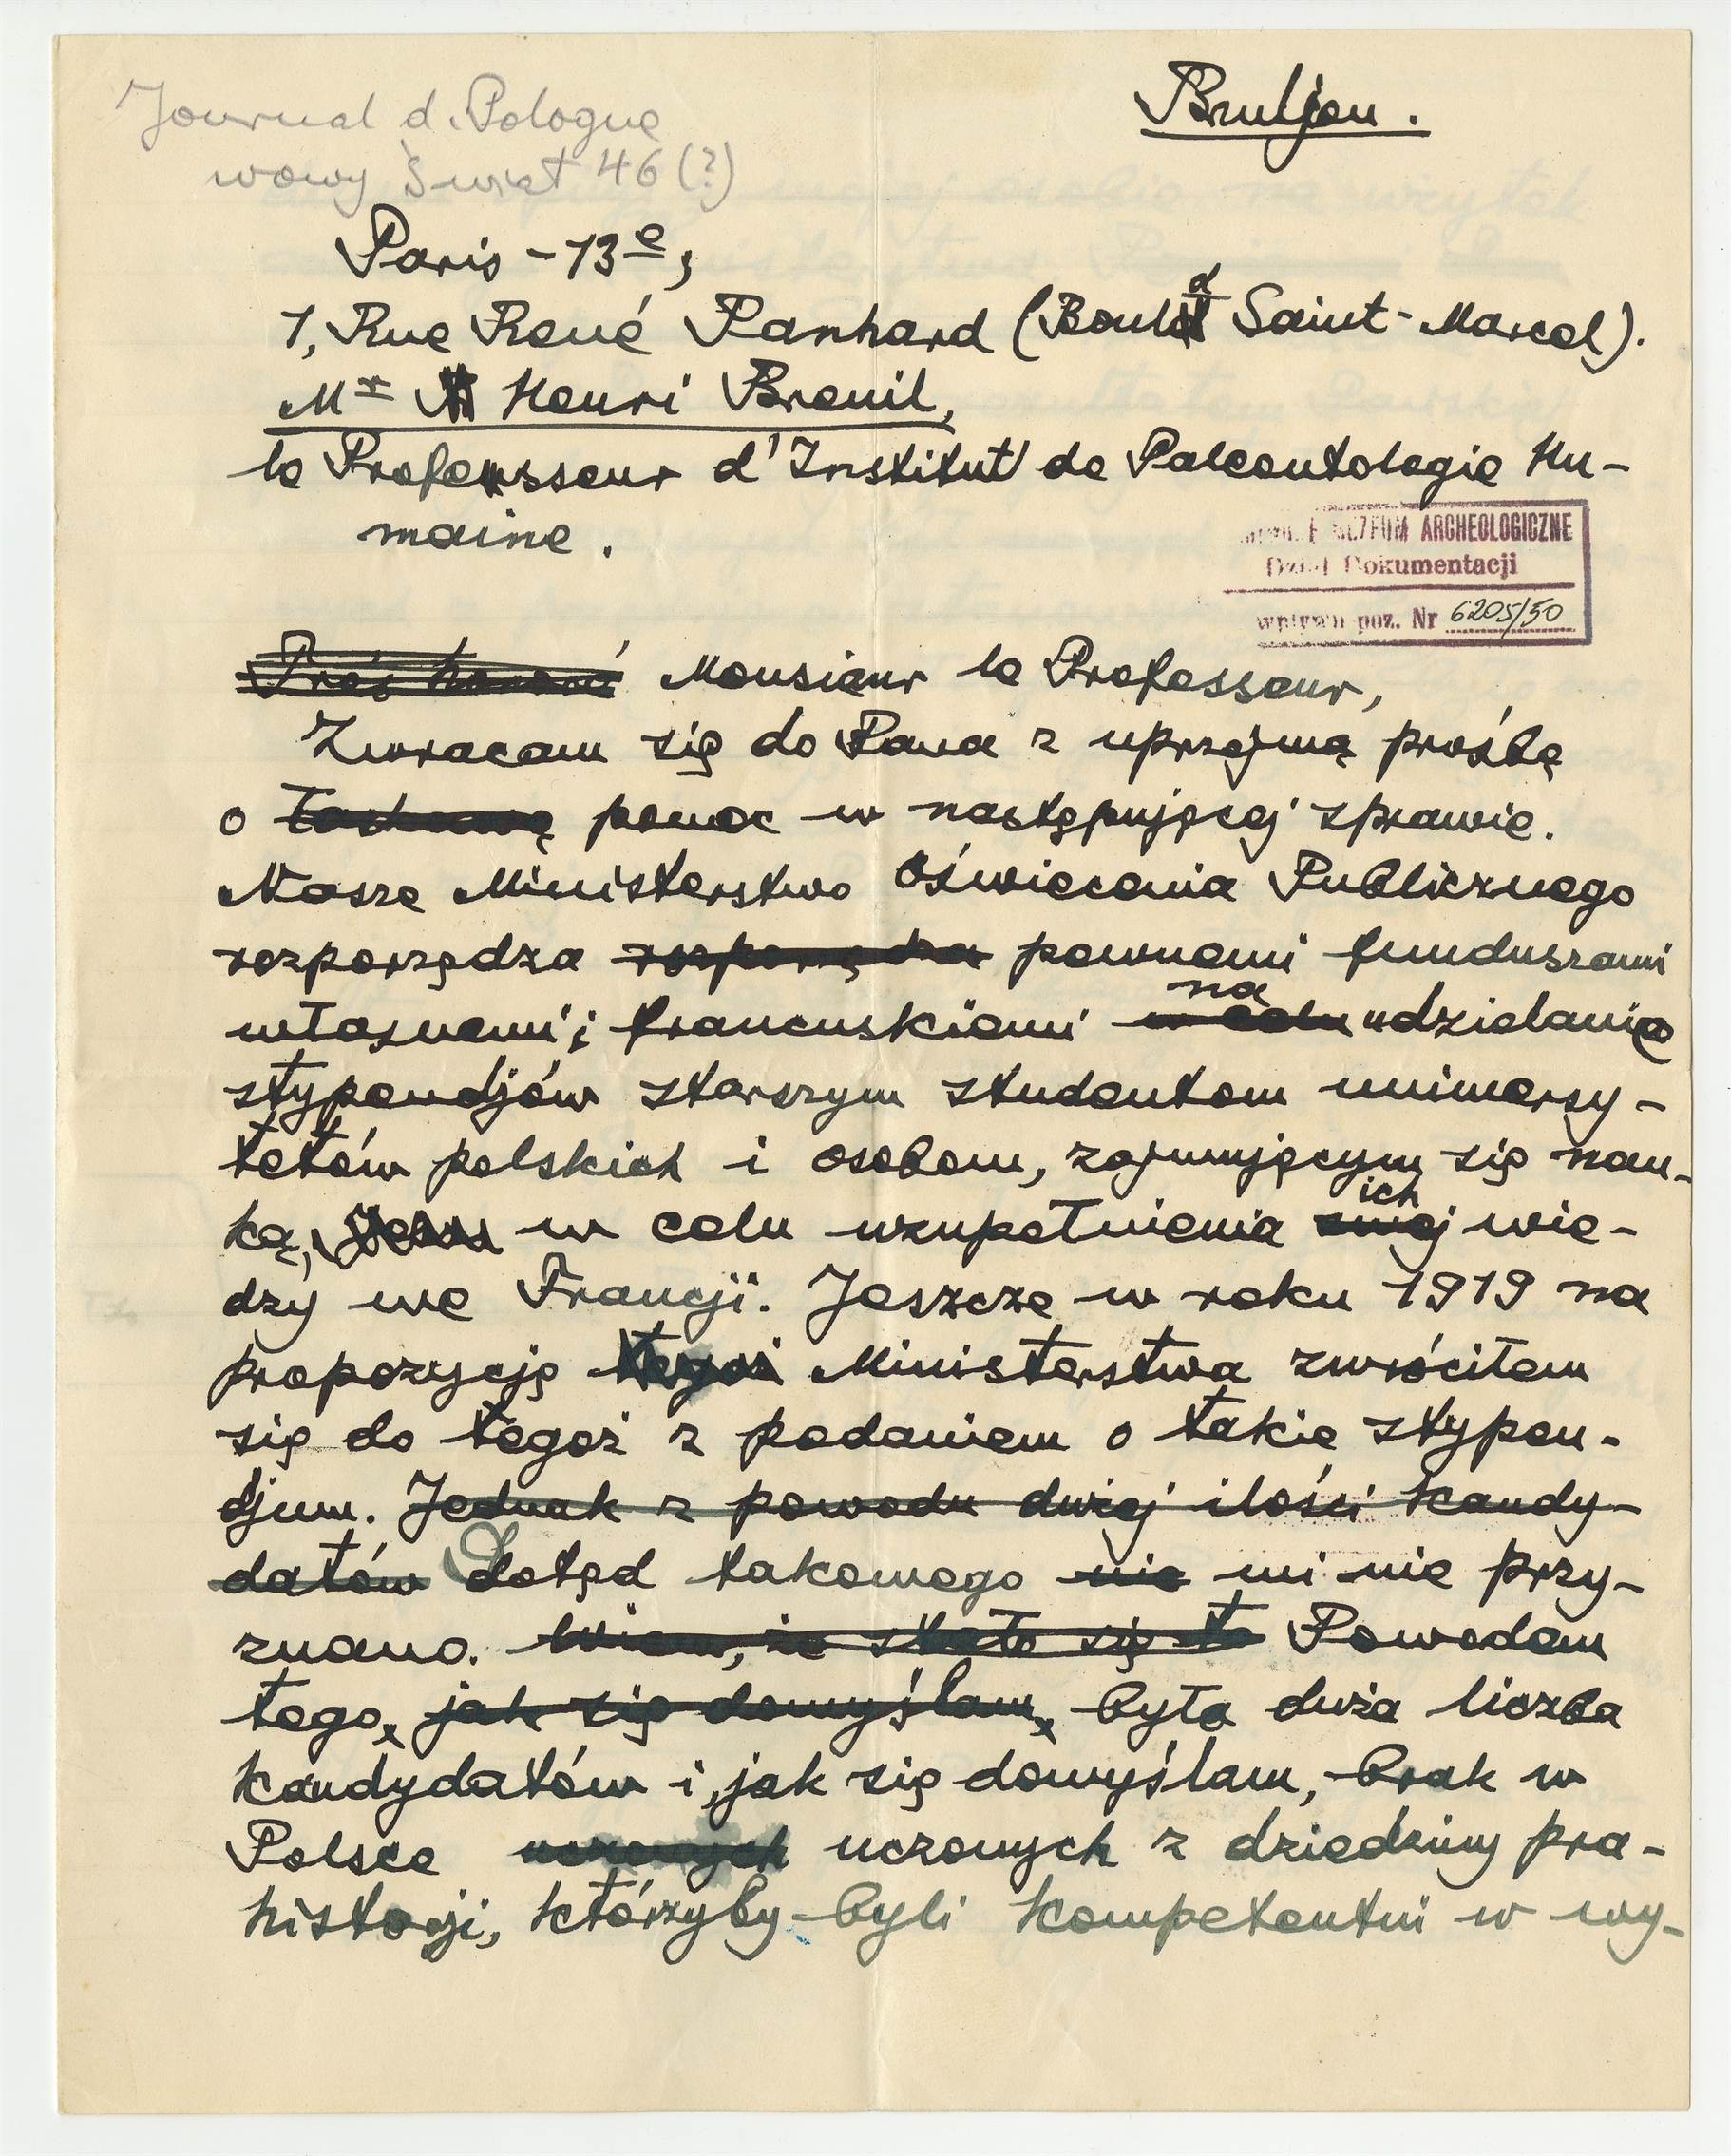 Journal d. Pologne
nowy Świat 46 (?)
Bruljon.
Paris - 13e,
1, Rue René Panhard (Bould Saint-Marcel).
Mr Henri Breuil,
le Professeur d'Institut de Paleontologie Hu-
maine.
MUZEUM ARCHEOLOGICZNE
Dział Dokumentacji
wpływu poz. Nr 6205/50
Très honoré Monsieur le Professeur,
Zwracam się do Pana z uprzejmą prośbą
o łaskawą pomoc w następującej sprawie.
Nasze Ministerstwo Oświecenia Publicznego
rozporządza rozporządza pewnemi funduszami
własnemi i francuskiemi w celu na udzielanie
stypendjów starszym studentom uniwersy-
tetów polskich i osobom, zajmującym się nau-
ką, w celu uzupełnienia swej ich wie-
dzy we Francji. Jeszcze w roku 1919 na
propozycję tegoż Ministerstwa zwróciłem
się do tegoż z podaniem o takie stypen-
djum. Jednak z powodu dużej ilości kandy-
datów Dotąd takowego nie mi nie przy-
znano. Wiem, że stało się to Powodem
tego, jak się domyślam, była duża liczba
kandydatów i, jak się domyślam, brak w
Polsce uczonych uczonych z dziedziny pra-
historji, którzyby byli kompetentni w wy-